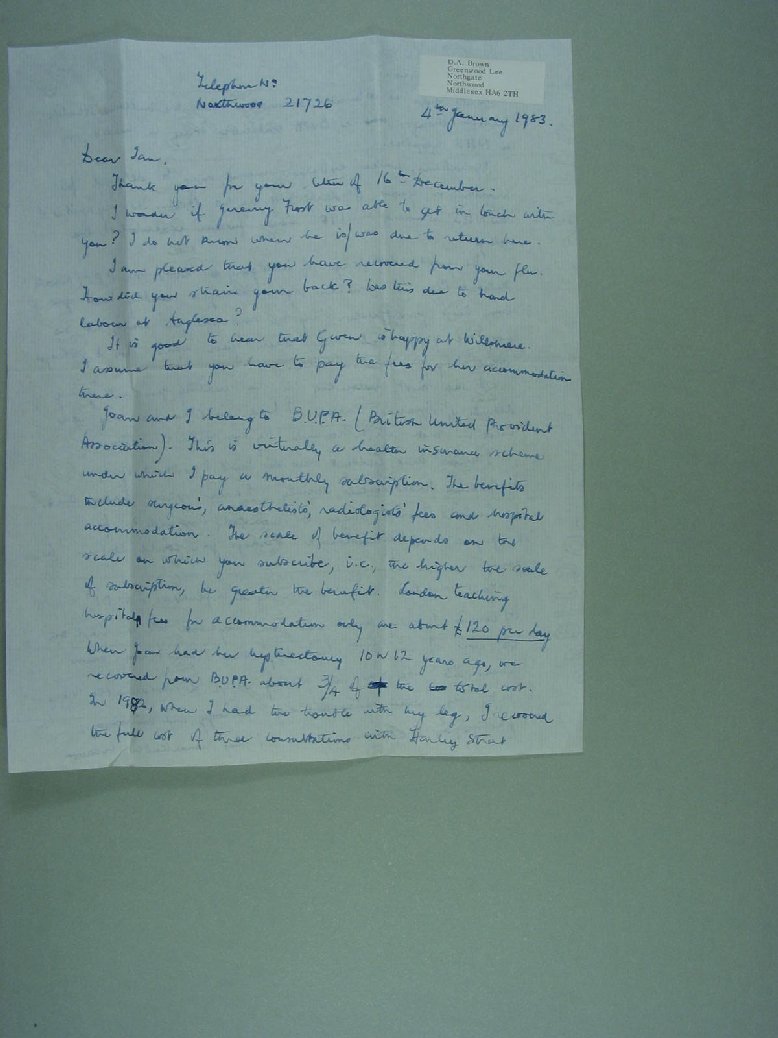 D.A. Brown
Greenwood Lee
Northgate
Northwood
Middlesex HA6 2TH
Telephone No
Northwood 21726
4th January 1983.
Dear Ian,
Thank you for your letter of 16th December.
I wonder if Jeremy Frost was able to get in touch with
you? I do not know when he is/was due to return here.
I am pleased that you have recovered from your flu.
How did you strain your back? Was this due to hard
labour at Anglesea?
It is good to hear that Gwen is happy at Willsmere.
I assume that you have to pay the fees for her accommodation
there.
Joan and I belong to B.U.P.A. (British United Provident
Association). This is virtually a health insurance scheme
under which I pay a monthly subscription. The benefits
include surgeons', anaesthetists', radiologists' fees and hospital
accommodation. The scale of benefit depends on the
scale on which you subscribe, i.e., the higher the scale
of subscription, the greater the benefit. London teaching
hospitals fees for accommodation only are about £120 per day
When Joan had her hysterectomy 10 or 12 years ago, we
recovered from B.U.P.A. about 3/4 of the total cost.
In 1982, when I had the trouble with my leg, I covered
the full cost of three consultations with Harley Street